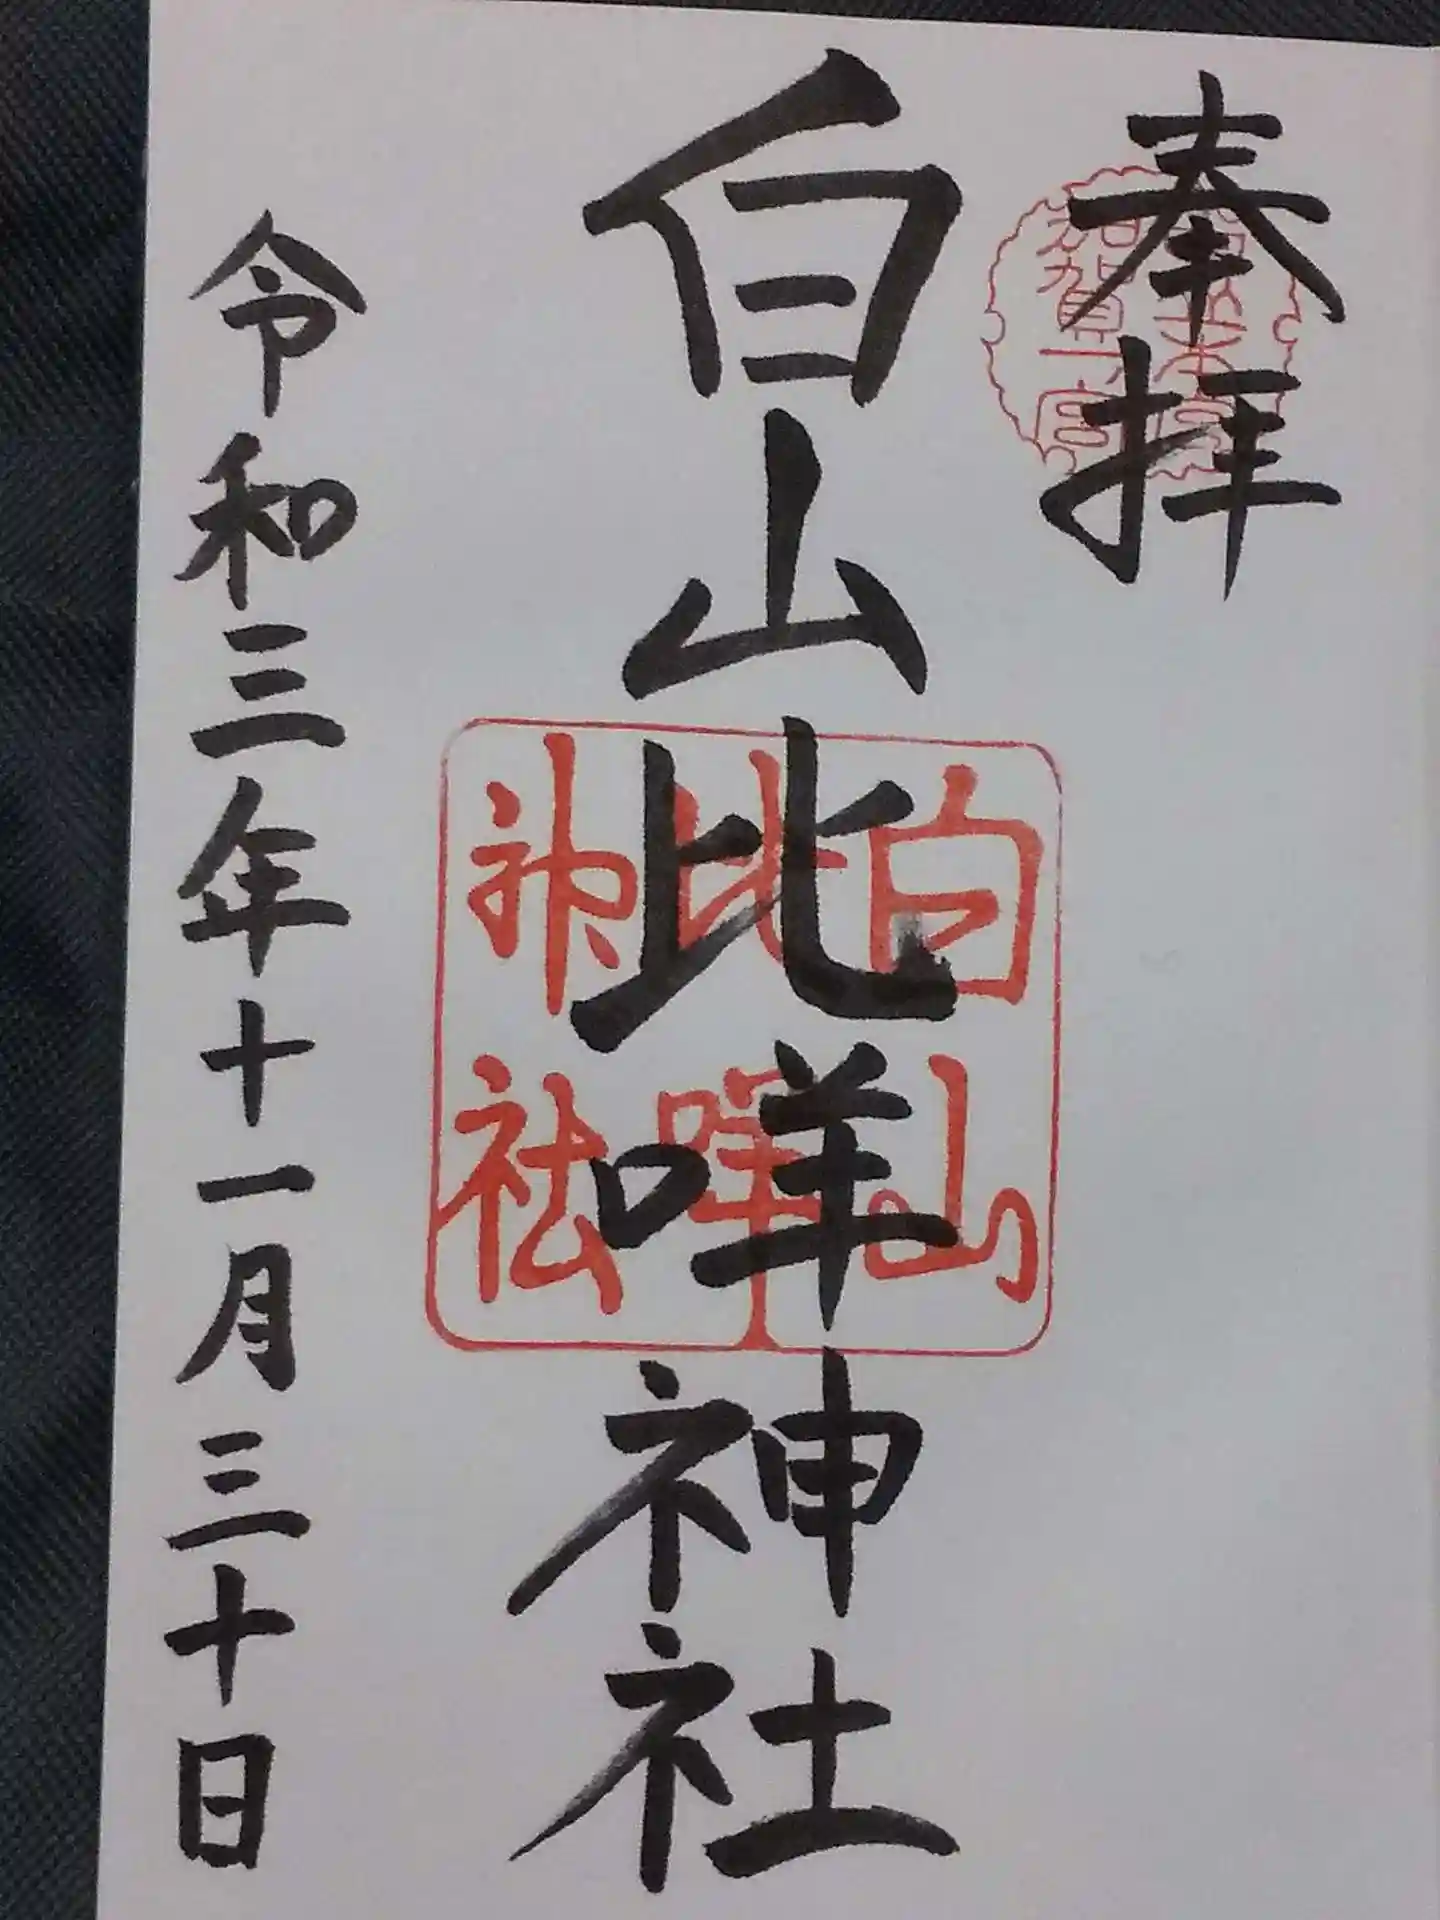 奉拝
加賀一宮
白山比咩神社
白山比咩神社
令和三年十一月三十日